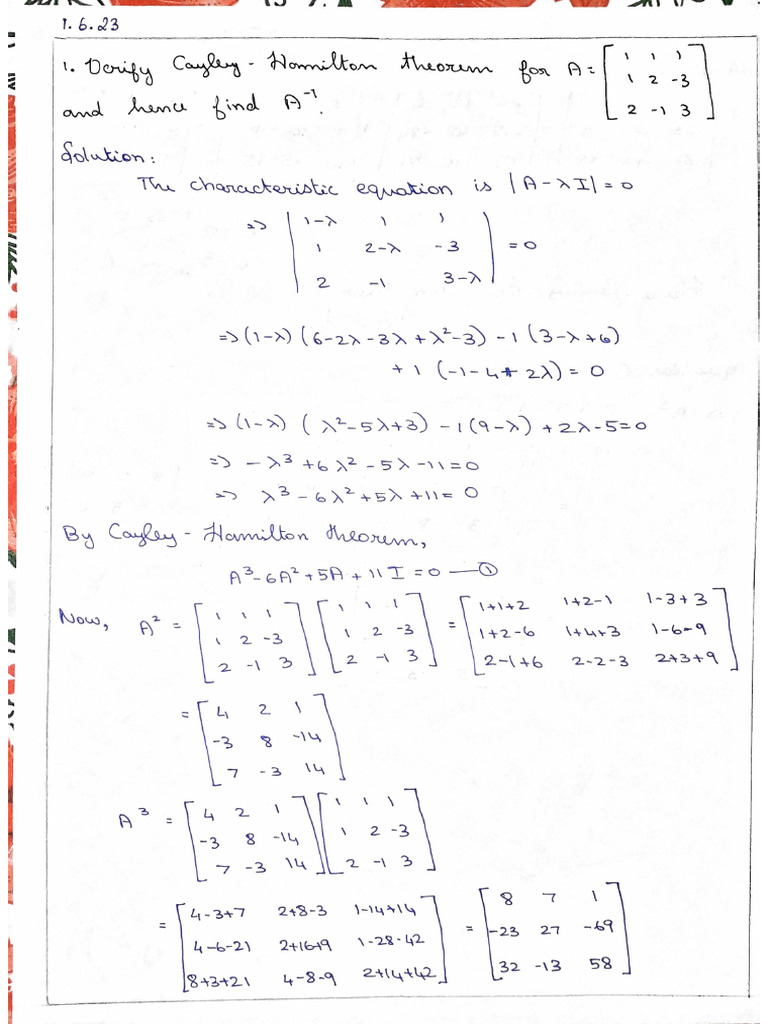 1.6.23
1. Verify Cayley-Hamilton theorem for A = [1 1 1; 1 2 -3; 2 -1 3]
and hence find A⁻¹.
Solution:
The characteristic equation is |A-λI|=0
=> |1-λ 1 1; 1 2-λ -3; 2 -1 3-λ| = 0
=> (1-λ) (6-2λ-3λ+λ²-3) -1 (3-λ+6)
+ 1 (-1-4+2λ) = 0
=> (1-λ) (λ²-5λ+3) -1(9-λ) +2λ-5=0
=> -λ³+6λ²-5λ-11=0
=> λ³-6λ²+5λ+11=0
By Cayley-Hamilton theorem,
A³-6A²+5A+11I=0 — ①
Now, A² = [1 1 1; 1 2 -3; 2 -1 3] [1 1 1; 1 2 -3; 2 -1 3] = [1+1+2 1+2-1 1-3+3; 1+2-6 1+4+3 1-6-9; 2-1+6 2-2-3 2+3+9]
= [4 2 1; -3 8 -14; 7 -3 14]
A³ = [4 2 1; -3 8 -14; 7 -3 14] [1 1 1; 1 2 -3; 2 -1 3]
= [4-3+7 2+8-3 1-14+14; 4-6-21 2+16+9 1-28-42; 8+3+21 4-8-9 2+14+42] = [8 7 1; -23 27 -69; 32 -13 58]